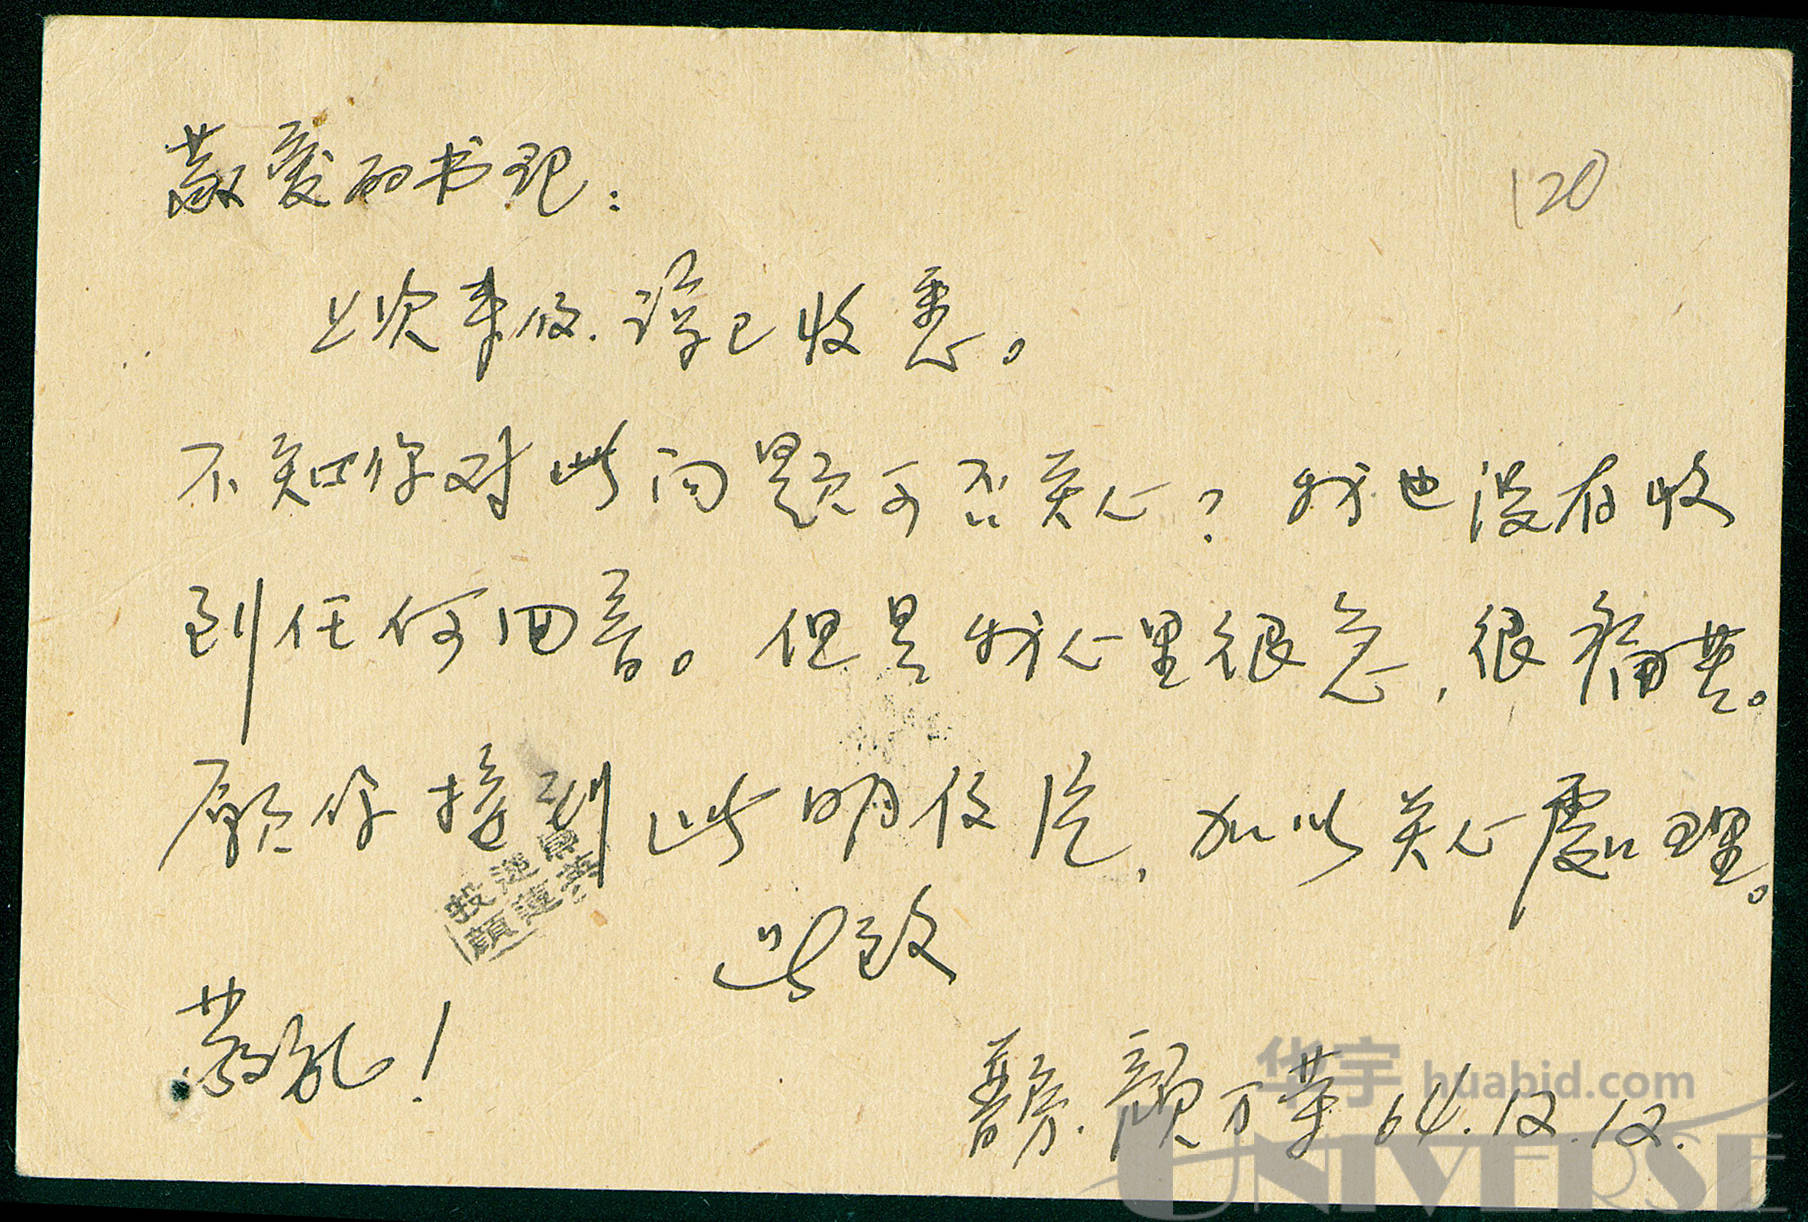 敬爱的书记:
120
上次来信.谅已收悉。
不知你对此问题可否关心?我也没有收
到任何回音。但是我心里很急,很痛苦。
愿你接到此明信片,加以关心处理。
此致
敬礼!
颜万荣 64.12.12.
投递员
颜莲英
华宇 huabid.com
UNIVERSE